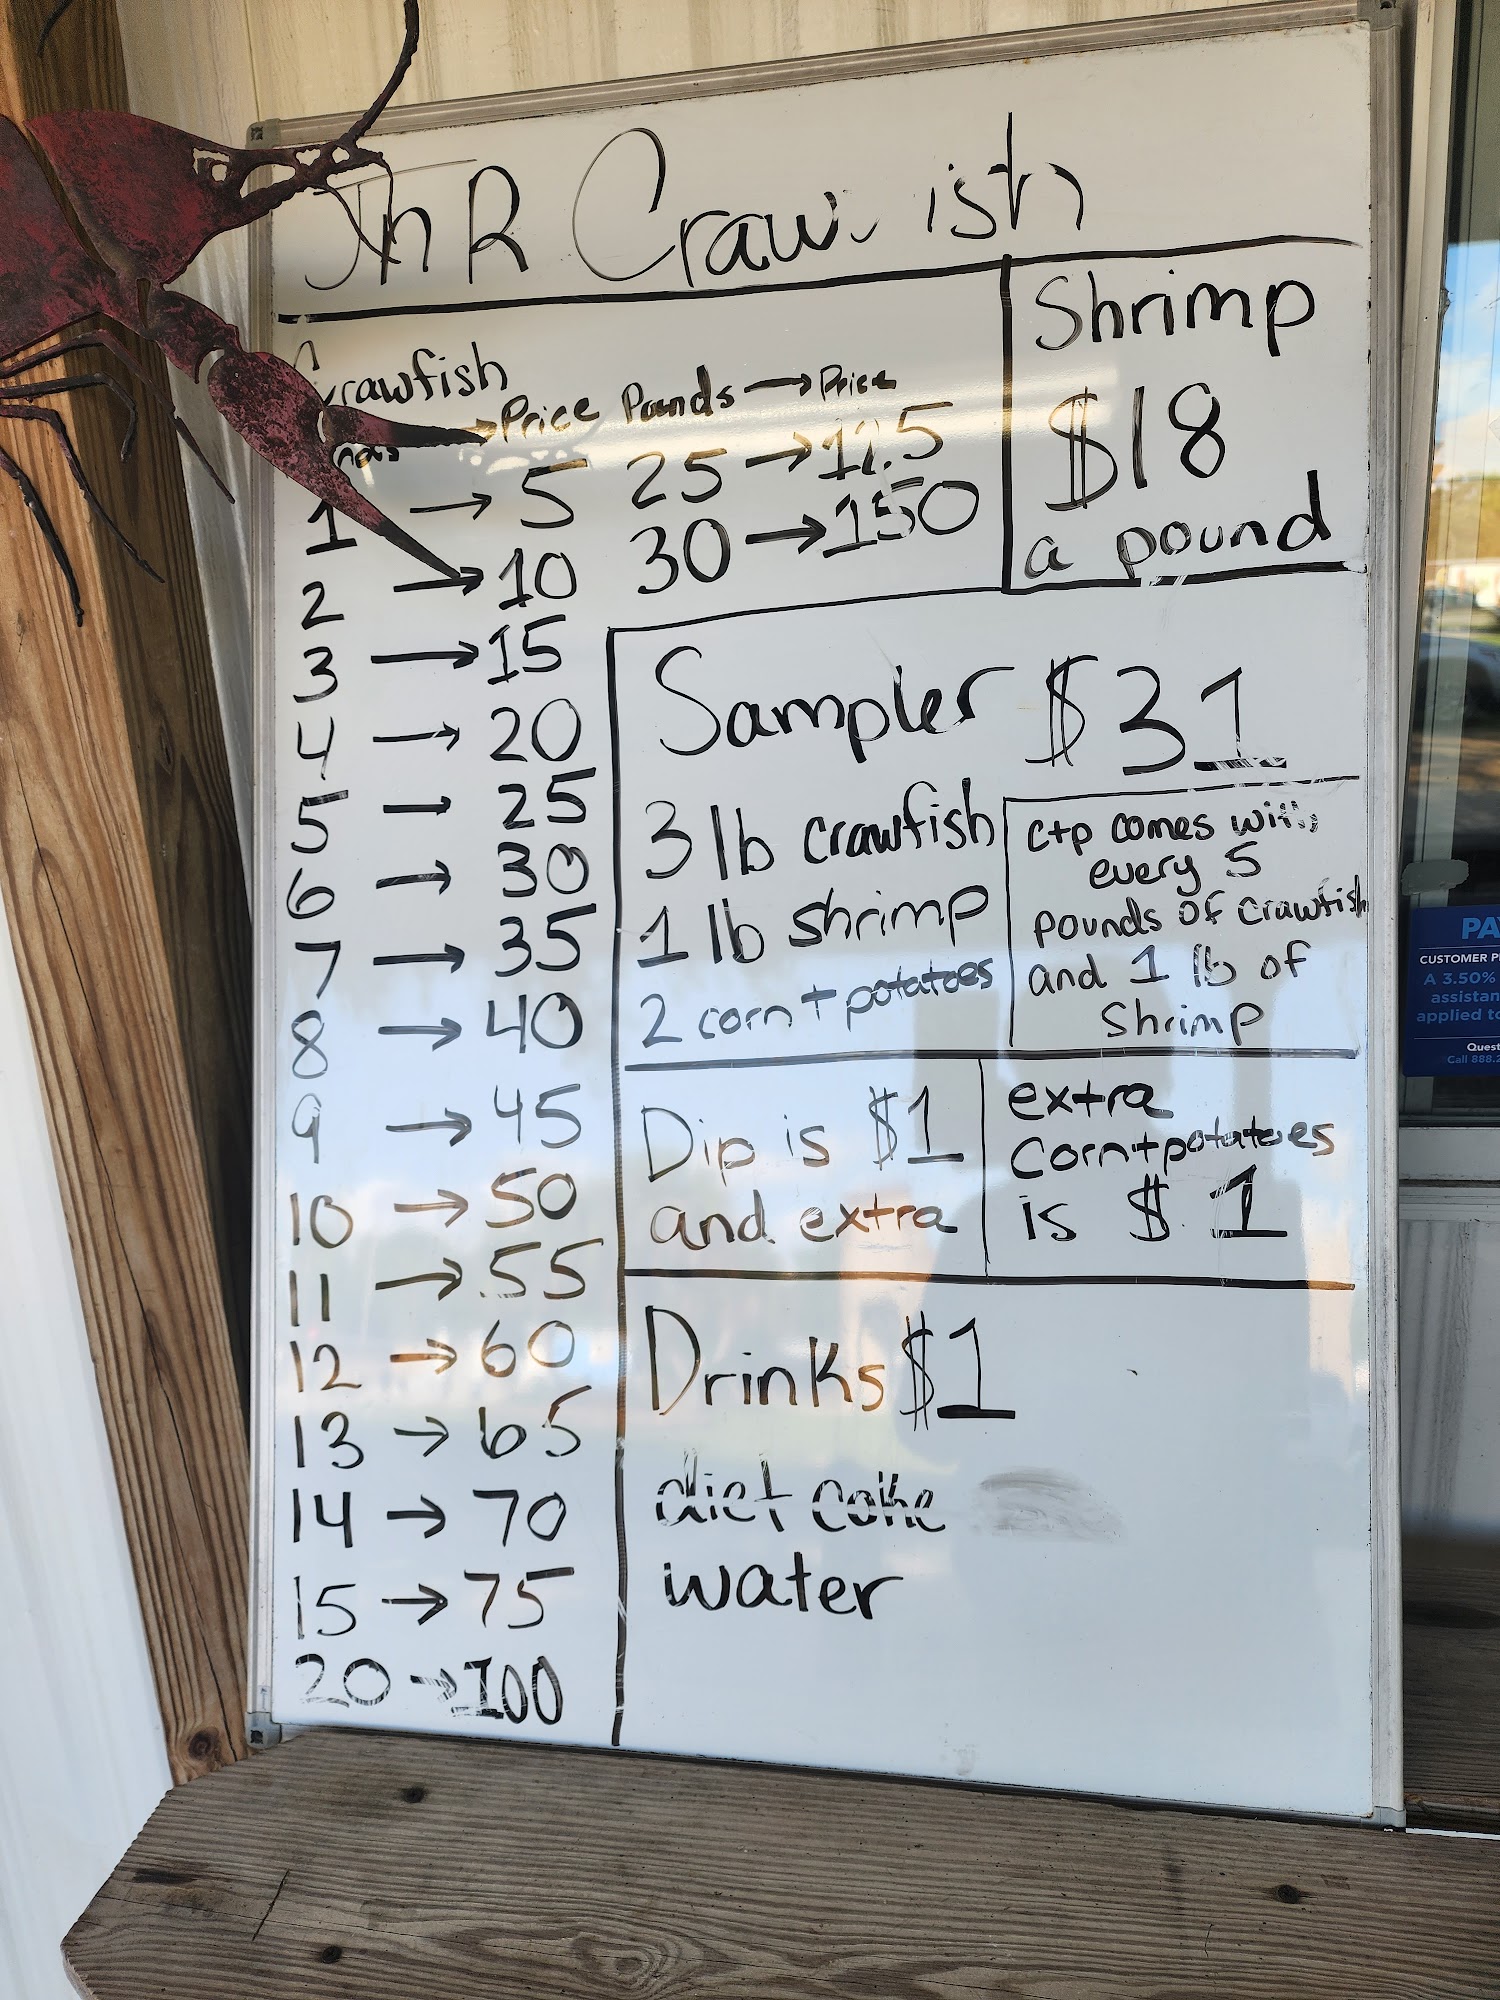 JnR Craw ish
Crawfish
Price Pounds → Price
1 → 5
2 → 10
3 → 15
4 → 20
5 → 25
6 → 30
7 → 35
8 → 40
9 → 45
10 → 50
11 → 55
12 → 60
13 → 65
14 → 70
15 → 75
20 → 100
25 → 125
30 → 150
Shrimp
$18
a pound
Sampler $31
3 lb crawfish
1 lb shrimp
2 corn + potatoes
c+p comes with
every 5
pounds of crawfish
and 1 lb of
Shrimp
Dip is $1
and extra
extra
corn+potatoes
is $1
Drinks $1
diet coke
water
PA
CUSTOMER P
A 3.50%
assistan
applied to
Quest
Call 888.